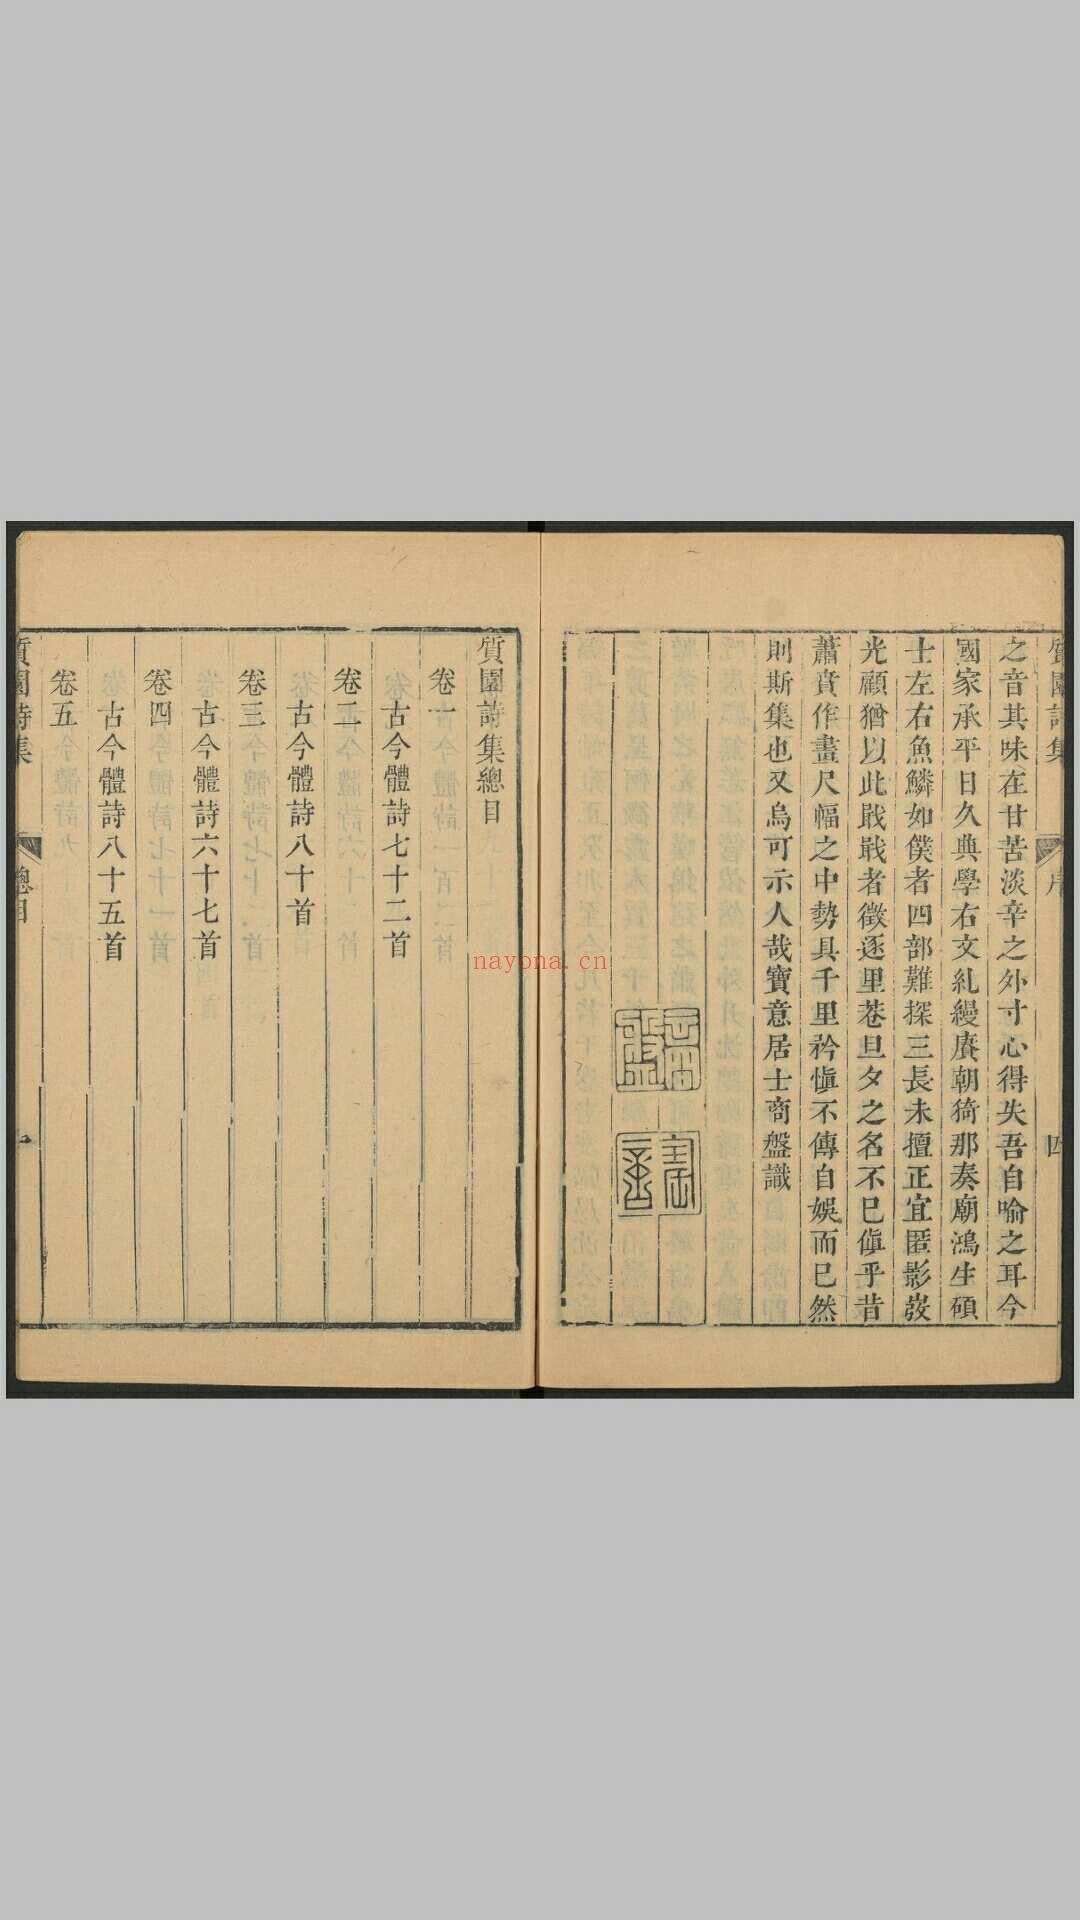 質園詩集
序
四
之音其味在甘苦淡辛之外寸心得失吾自喻之耳今
國家承平日久典學右文糺縵賡朝猗那奏廟鴻生碩
士左右魚鱗如僕者四部難探三長未擅正宜匿影
光顧猶以此戢戢者徵逐里巷旦夕之名不已傎乎昔
蕭賁作畫尺幅之中勢具千里矜愼不傳自娛而已然
則斯集也又烏可示人哉寶意居士商盤識
質園詩集總目
卷一
古今體詩七十二首
卷二
古今體詩八十首
卷三
古今體詩六十七首
卷四
古今體詩八十五首
卷五
質園詩集
總目
nayona.cn